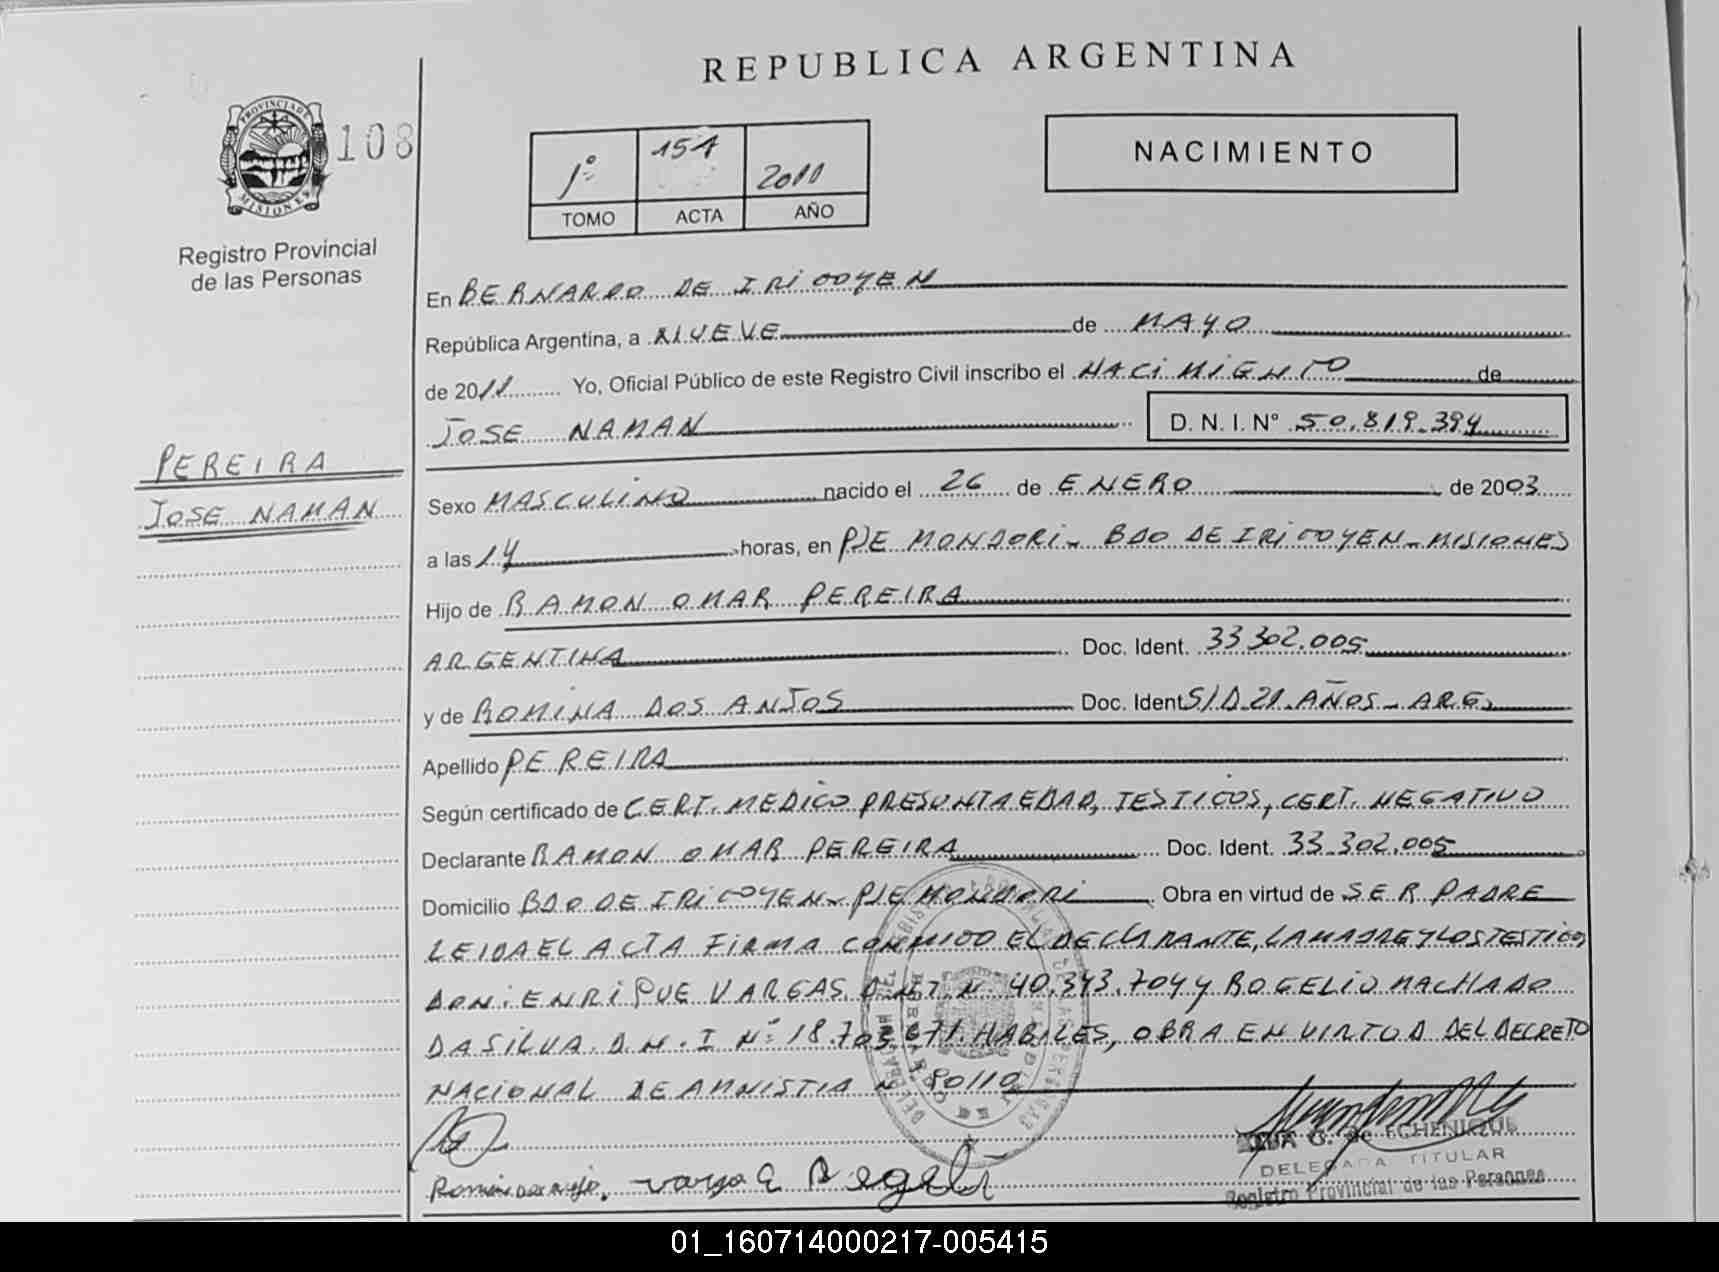 REPUBLICA ARGENTINA
PROVINCIA DE
MISIONES
108
Registro Provincial
de las Personas
1º 154 2011
TOMO ACTA AÑO
NACIMIENTO
En BERNARDO DE IRIGOYEN
República Argentina, a NUEVE de MAYO
de 2011 Yo, Oficial Público de este Registro Civil inscribo el NACIMIENTO de
JOSE NAMAN D. N. I. Nº 50.819.394
PEREIRA
JOSE NAMAN
Sexo MASCULINO nacido el 26 de ENERO de 2003
a las 14 horas, en PJE MONDORI - BDO DE IRIGOYEN - MISIONES
Hijo de RAMON OMAR PEREIRA
ARGENTINA Doc. Ident. 33.302.005
y de ROMINA DOS ANJOS Doc. Ident S/D 21 AÑOS - ARG.
Apellido PEREIRA
Según certificado de CERT. MEDICO PRESUNTA EDAD, TESTIGOS, CERT. NEGATIVO
Declarante RAMON OMAR PEREIRA Doc. Ident. 33.302.005
Domicilio BDO DE IRIGOYEN - PJE MONDORI Obra en virtud de SER PADRE
LEIDA EL ACTA FIRMA CONMIGO EL DECLARANTE, LA MADRE Y LOS TESTIGOS
DON: ENRIQUE VARGAS D.N.I. N 40.343.704 Y ROGELIO MACHADO
DA SILVA D.N.I Nº 18.703.671. HABILES, OBRA EN VIRTUD DEL DECRETO
NACIONAL DE AMNISTIA N 90/10
G. de ECHENIQUE
DELEGADA TITULAR
Registro Provincial de las Personas
01_160714000217-005415